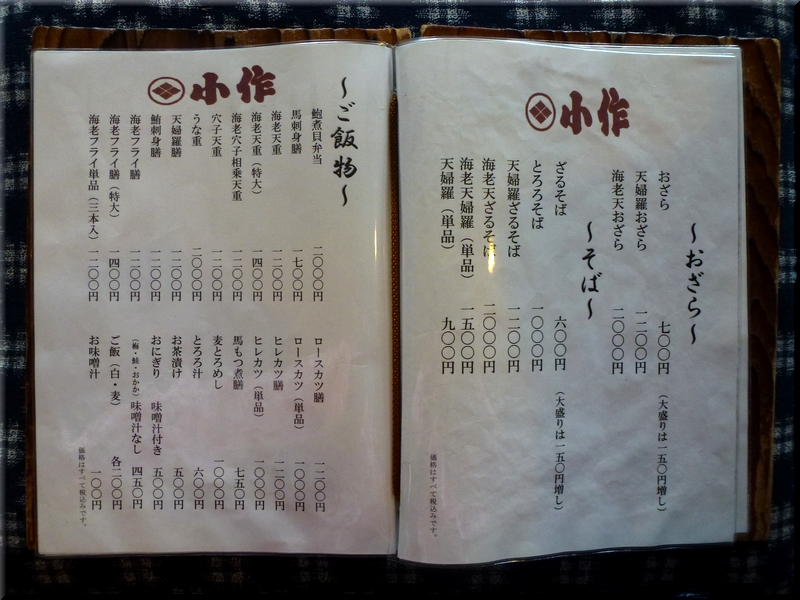 小作
〜おざら〜
おざら 七〇〇円 （大盛りは一五〇円増し）
天婦羅おざら 一二〇〇円
海老天おざら 二〇〇〇円
〜そば〜
ざるそば 六〇〇円 （大盛りは一五〇円増し）
とろろそば 一〇〇〇円
天婦羅ざるそば 一二〇〇円
海老天ざるそば 二〇〇〇円
海老天婦羅（単品） 一五〇〇円
天婦羅（単品） 九〇〇円
価格はすべて税込みです。
小作
〜ご飯物〜
鮑煮貝弁当 二〇〇〇円
馬刺身膳 一七〇〇円
海老天重 一二〇〇円
海老天重（特大） 一四〇〇円
海老穴子相乗天重 一二〇〇円
穴子天重 一二〇〇円
うな重 二〇〇〇円
天婦羅膳 一二〇〇円
鮪刺身膳 一二〇〇円
海老フライ膳 一二〇〇円
海老フライ膳（特大） 一四〇〇円
海老フライ単品（三本入） 一二〇〇円
ロースカツ膳 一二〇〇円
ロースカツ（単品） 一〇〇〇円
ヒレカツ膳 一二〇〇円
ヒレカツ（単品） 一〇〇〇円
馬もつ煮膳 七五〇円
麦とろめし 一〇〇〇円
とろろ汁 六〇〇円
お茶漬け 五〇〇円
おにぎり 味噌汁付き 五〇〇円
（梅・鮭・おかか） 味噌汁なし 四五〇円
ご飯（白・麦） 各二〇〇円
お味噌汁 一〇〇円
価格はすべて税込みです。